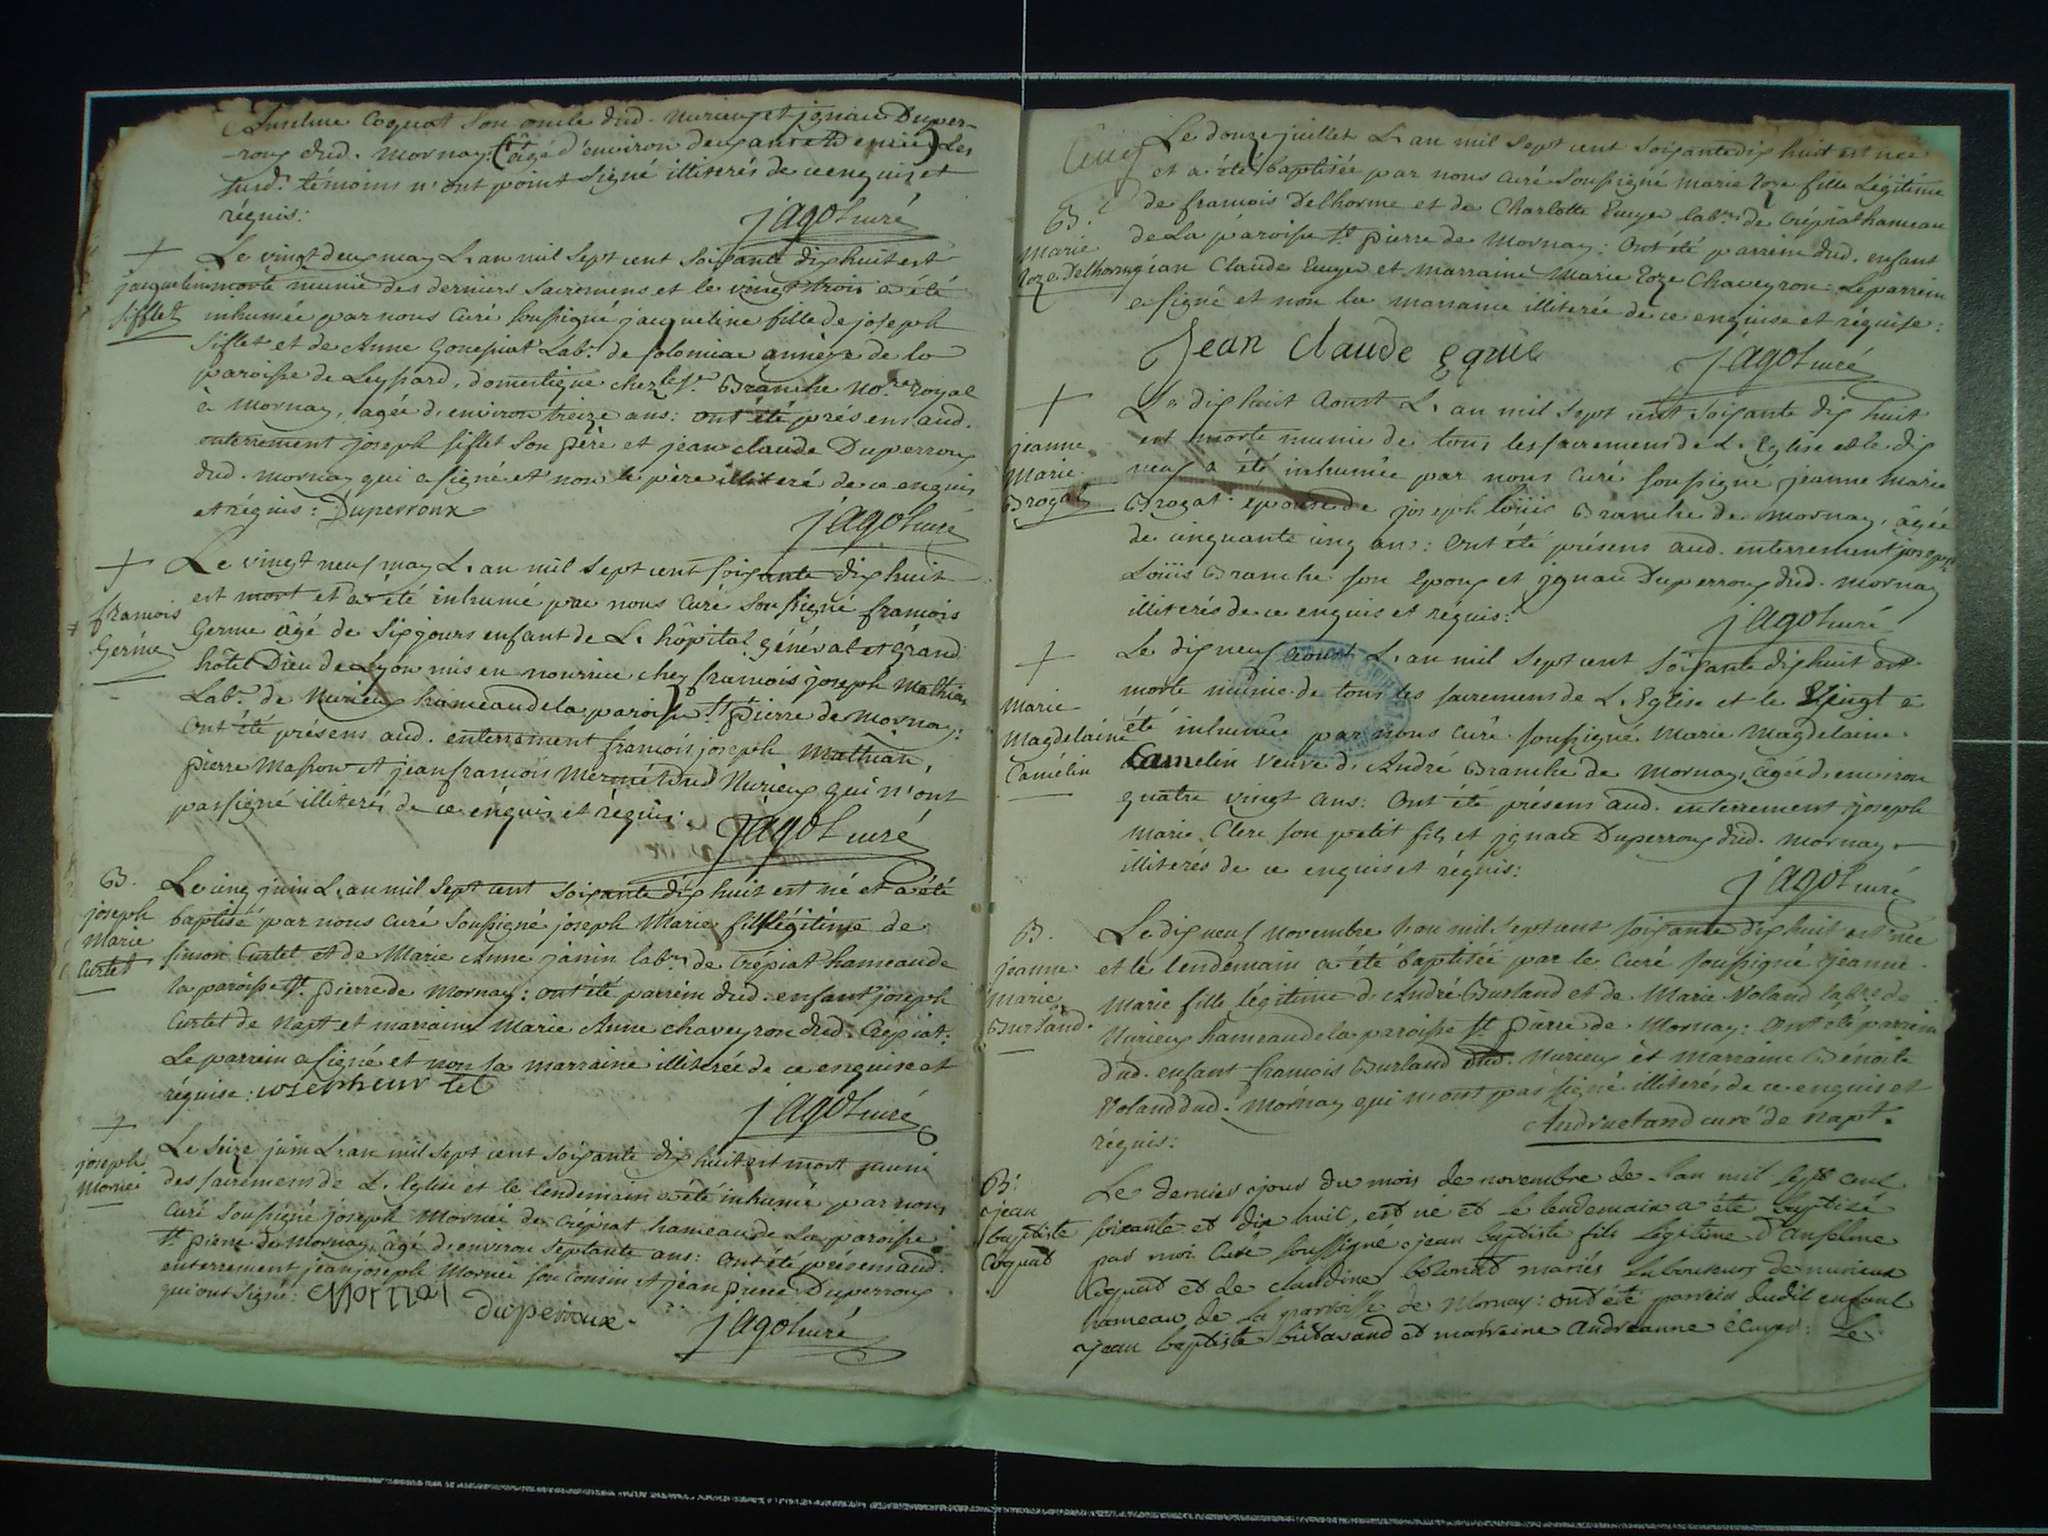 Anselme Coquat son oncle dud. Nurieux et jgnace Duper-
roux dud. Mornay: (âgé d'environ deux ans et demie) Les
susd. témoins n'ont point signé illiterés de ce enquis et
réquis:
jagot curé
Le vingt deux may L'an mil sept cent soixante dix huit est
morte munie des derniers sacremens et le vingt trois a été
inhumée par nous Curé soussigné jacqueline fille de joseph
Siflet et de Anne Lab.r de Solomiac annèxe de la
paroisse de Leyssard, domestique chez le S.r Branche No.re royal
à Mornay, agée d'environ treize ans: ont été présens aud.
enterrement joseph siflet son père et jean claude Duperroux
dud. Mornay qui a signé et non le père illiteré de ce enquis
et réquis: Duperroux
jagot curé
+
jacqueline
Sifflet
Le vingt neuf may L'an mil sept cent soixante dix huit
est mort et a été inhumé par nous Curé soussigné francois
Germe âgé de six jours enfant de L'hôpital général et grand
hôtel Dieu de Lyon mis en nourrice chez francois joseph Mathian
Lab.r de Nurieux hameau de la paroisse St. pierre de Mornay:
Ont été présens aud. enterrement francois joseph Mathian,
pierre Masson et jean francois dud Nurieux qui n'ont
pas signé illiterés de ce enquis et réquis:
jagot curé
+
francois
Germe
Le cinq juin L'an mil sept cent soixante dix huit est né et a été
baptisé par nous Curé soussigné joseph Marie fils légitime de
simon Curtet et de Marie Anne janin lab.rs de Crépiat hameau de
la paroisse St. pierre de Mornay: ont été parrein dud. enfant joseph
Curtet de Napt et marraine Marie Anne chaveyron dud. Crépiat:
Le parrein a signé et non la marraine illiterée de ce enquise et
réquise:
jagot curé
B.
joseph
Marie
Curtet
Le seize juin L'an mil sept cent soixante dix huit est mort muni
des sacremens de L'Eglise et le lendemain a été inhumé par nous
Curé soussigné joseph Mornéi de Crépiat hameau de La paroisse
St. pierre de Mornay, âgé d'environ septante ans: Ont été présens aud.
enterrement jean joseph Mornéi son cousin et jean pierre Duperroux
qui ont signé:
duperroux.
jagot curé
+
joseph
Mornéi
Le douze juillet L'an mil sept cent soixante dix huit est née
et a été baptisée par nous Curé soussigné Marie Roze fille Légitime
de francois Delhorme et de Charlotte Ecuyer lab.rs de Crépiat hameau
de La paroisse St. pierre de Mornay: Ont été parrein dud. enfant
jean Claude Ecuyer et marraine Marie Roze Chaveyron: Le parrein
a signé et non la marraine illiterée de ce enquise et réquise:
Jean claude
jagot curé
B.
Marie
Roze Delhorme
Le dix huit Aoust L'an mil sept cent soixante dix huit
est morte munie de tous les sacremens de L'Eglise et le dix
neuf a été inhumée par nous Curé soussigné jeanne Marie
Brogat épouse de joseph Loüis Branche de Mornay, âgée
de cinquante cinq ans: Ont été présens aud. enterrement joseph
Loüis Branche son Epoux et jgnace Duperroux dud. Mornay
illiterés de ce enquis et réquis:
jagot curé
+
jeanne
Marie
Brogat
Le dix neuf Aoust L'an mil sept cent soixante dix huit est
morte munie de tous les sacremens de L'Eglise et le Vingt a
été inhumée par nous Curé soussigné Marie Magdelaine
Camelin veuve d'André Branche de Mornay, âgée d'environ
quatre vingt ans: Ont été présens aud. enterrement joseph
Marie Clere son petit fils et jgnace Duperroux dud. Mornay
illiterés de ce enquis et réquis:
jagot curé
+
Marie
Magdelaine
Camélin
Le dix neuf novembre L'an mil sept cent soixante dix huit est née
et le lendemain a été baptisée par le Curé soussigné jeanne
Marie fille légitime d'André Burland et de Marie Voland lab.rs de
Nurieux hameau de la paroisse St pierre de Mornay: Ont été parrein
dud. enfant francois Burland dud. Nurieux et Marraine Bénoite
Voland dud. Mornay qui n'ont pas signé illiterés de ce enquis et
réquis:
Andruetand curé de Napt.
B.
jeanne
Marie
Burland.
Le dernier jour du mois de novembre de l'an mil sept cent
soixante et dix huit, est né et le lendemain a été baptisé
par moi Curé soussigné jean baptiste fils légitime d'Anselme
Coquat et de claudine mariés Laboureurs de nurieux
hameau de La paroisse de Mornay: ont été parrein dudit enfant
jean baptiste et marreine Andréanne écuyer: Le
B.
jean
baptiste
Coquat